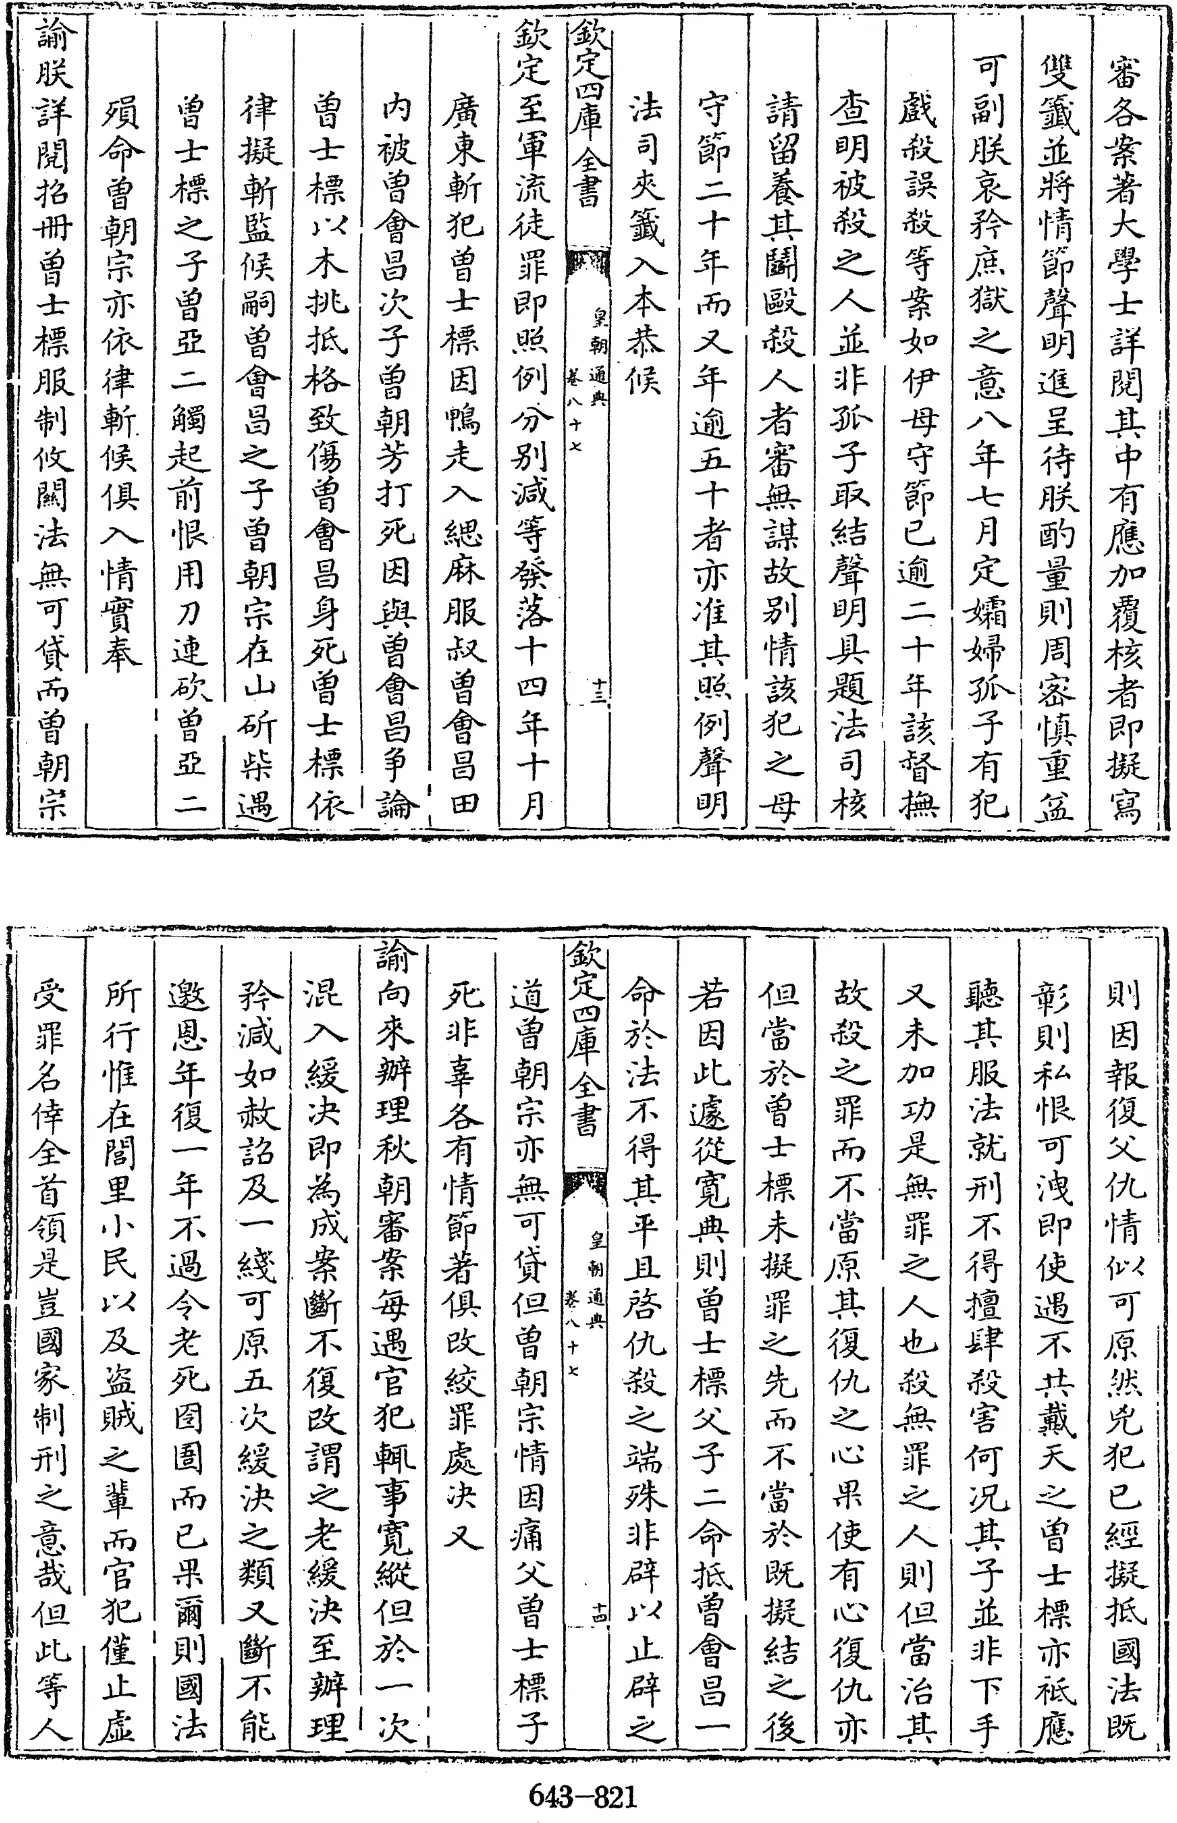 審各案著大學士詳閱其中有應加覆核者即擬寫
雙籤並將情節聲明進呈待朕酌量則周密慎重益
可副朕哀矜庶獄之意八年七月定孀婦孤子有犯
戲殺誤殺等案如伊母守節已逾二十年該督撫
查明被殺之人並非孤子取結聲明具題法司核
請留養其鬭毆殺人者審無謀故别情該犯之母
守節二十年而又年逾五十者亦准其照例聲明
法司夾籤入本恭候
欽定四庫全書
皇朝通典
卷八十七
十三
欽定至軍流徒罪即照例分别減等發落十四年十月
廣東斬犯曾士標因鴨走入緦麻服叔曾會昌田
内被曾會昌次子曾朝芳打死因與曾會昌争論
曾士標以木挑抵格致傷曾會昌身死曾士標依
律擬斬監候嗣曾會昌之子曾朝宗在山斫柴遇
曾士標之子曾亞二觸起前恨用刀連砍曾亞二
殞命曾朝宗亦依律斬候俱入情實奉
諭朕詳閱招冊曾士標服制攸關法無可貸而曾朝宗
則因報復父仇情似可原然兇犯已經擬抵國法既
彰則私恨可洩即使遇不共戴天之曾士標亦祗應
聽其服法就刑不得擅肆殺害何况其子並非下手
又未加功是無罪之人也殺無罪之人則但當治其
故殺之罪而不當原其復仇之心果使有心復仇亦
但當於曾士標未擬罪之先而不當於既擬結之後
若因此遽從寬典則曾士標父子二命抵曾會昌一
命於法不得其平且啓仇殺之端殊非辟以止辟之
欽定四庫全書
皇朝通典
卷八十七
十四
道曾朝宗亦無可貸但曾朝宗情因痛父曾士標子
死非辜各有情節著俱改絞罪處决又
諭向來辦理秋朝審案每遇官犯輒事寛縱但於一次
混入緩决即為成案斷不復改謂之老緩决至辦理
矜減如赦詔及一綫可原五次緩決之類又斷不能
邀恩年復一年不過令老死囹圄而已果爾則國法
所行惟在閭里小民以及盜賊之輩而官犯僅止虛
受罪名倖全首領是豈國家制刑之意哉但此等人
643-821